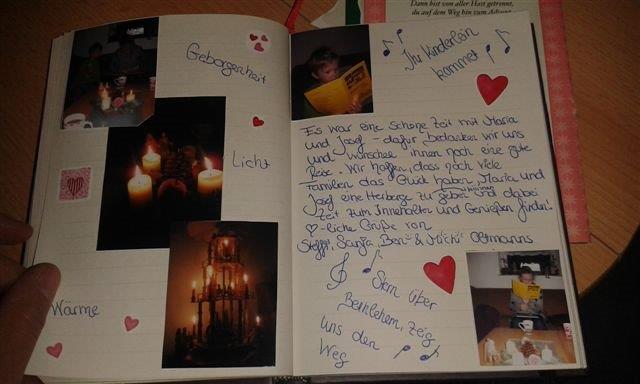 Geborgenheit
Licht
Wärme
Dann bist von aller Hast getrennt,
du auf dem Weg hin zum Advent
Ihr Kinderlein
kommet
Es war eine schöne Zeit mit Maria
und Josef - dafür bedanken wir uns
und wünschen ihnen noch eine gute
Reise. Wir hoffen, dass noch viele
Familien das Glück haben, Maria und
Josef eine Herberge zu geben und dabei
Zeit zum Innehalten und Genießen finden!
-liche Grüße von
Steffen, Sanja, Ben & Micki Oltmanns
Stern über
Bethlehem, zeig
uns den
Weg